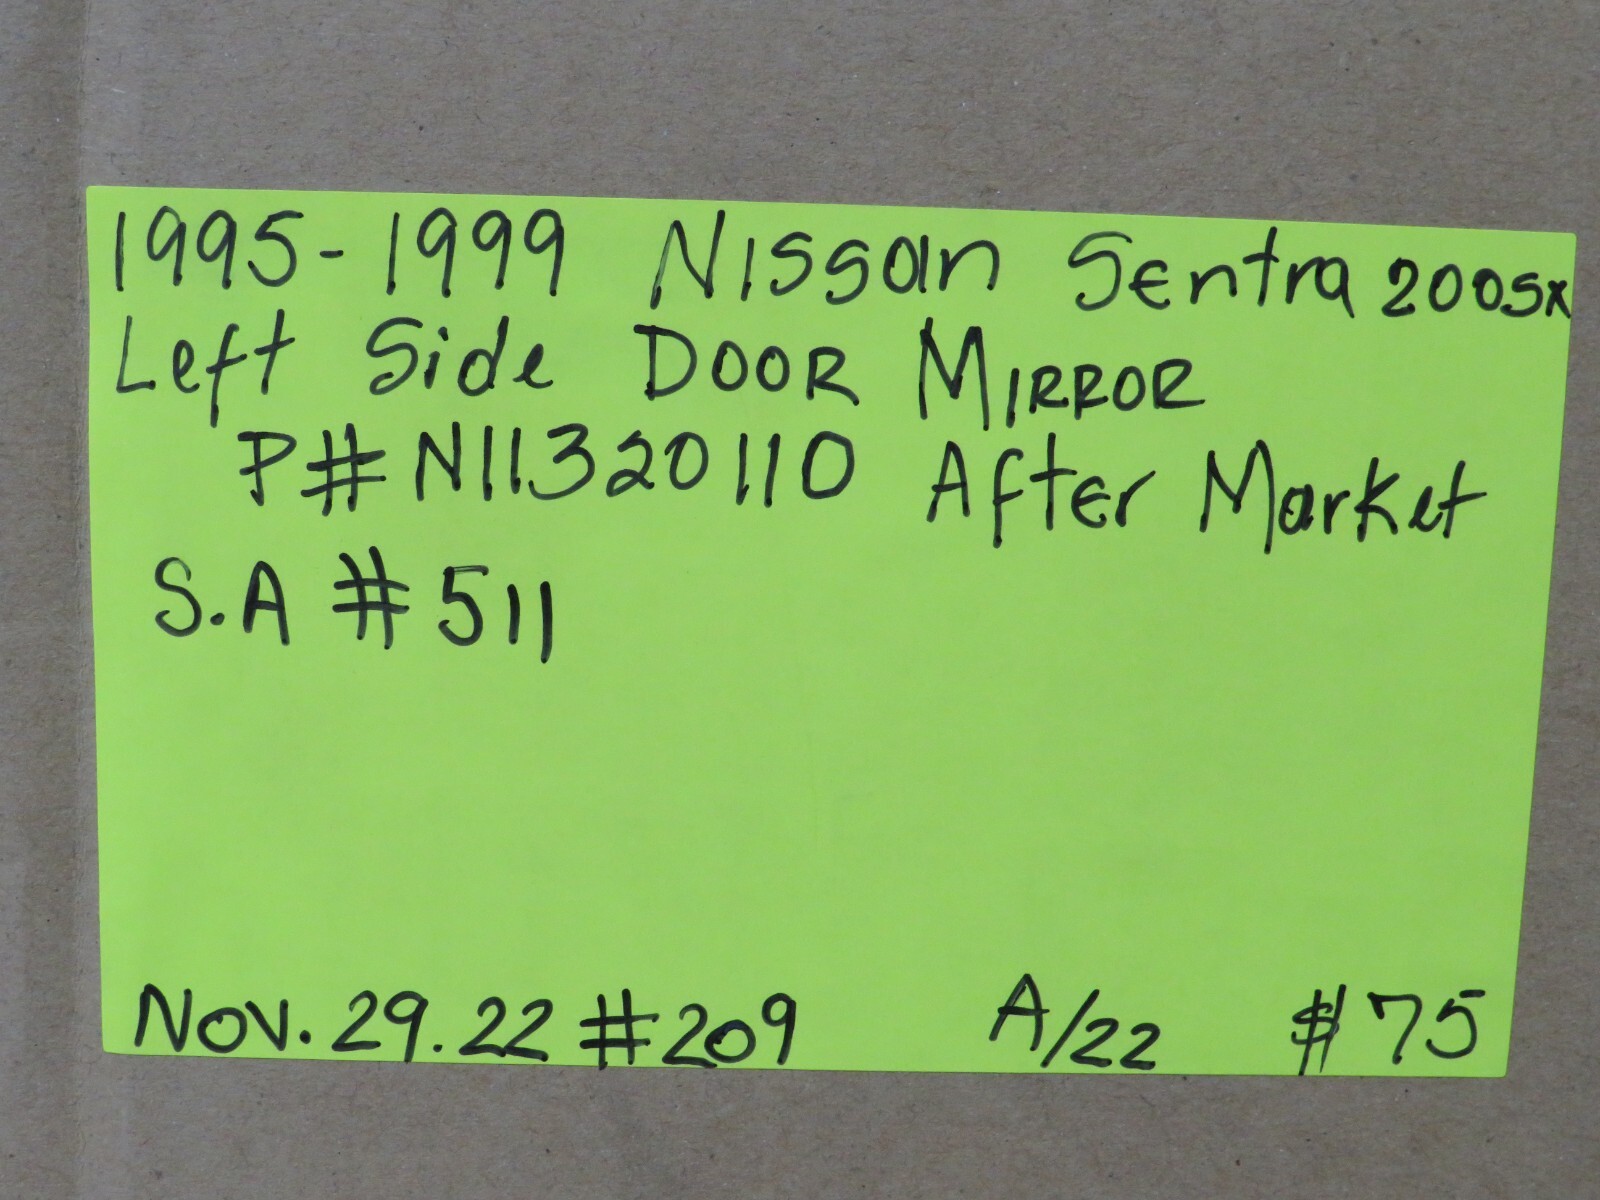 1995-1999 Nissan Sentra 200sx
Left Side DOOR MIRROR
P# N11320110 After Market
S.A # 511
Nov. 29. 22 #209 A/22 $75